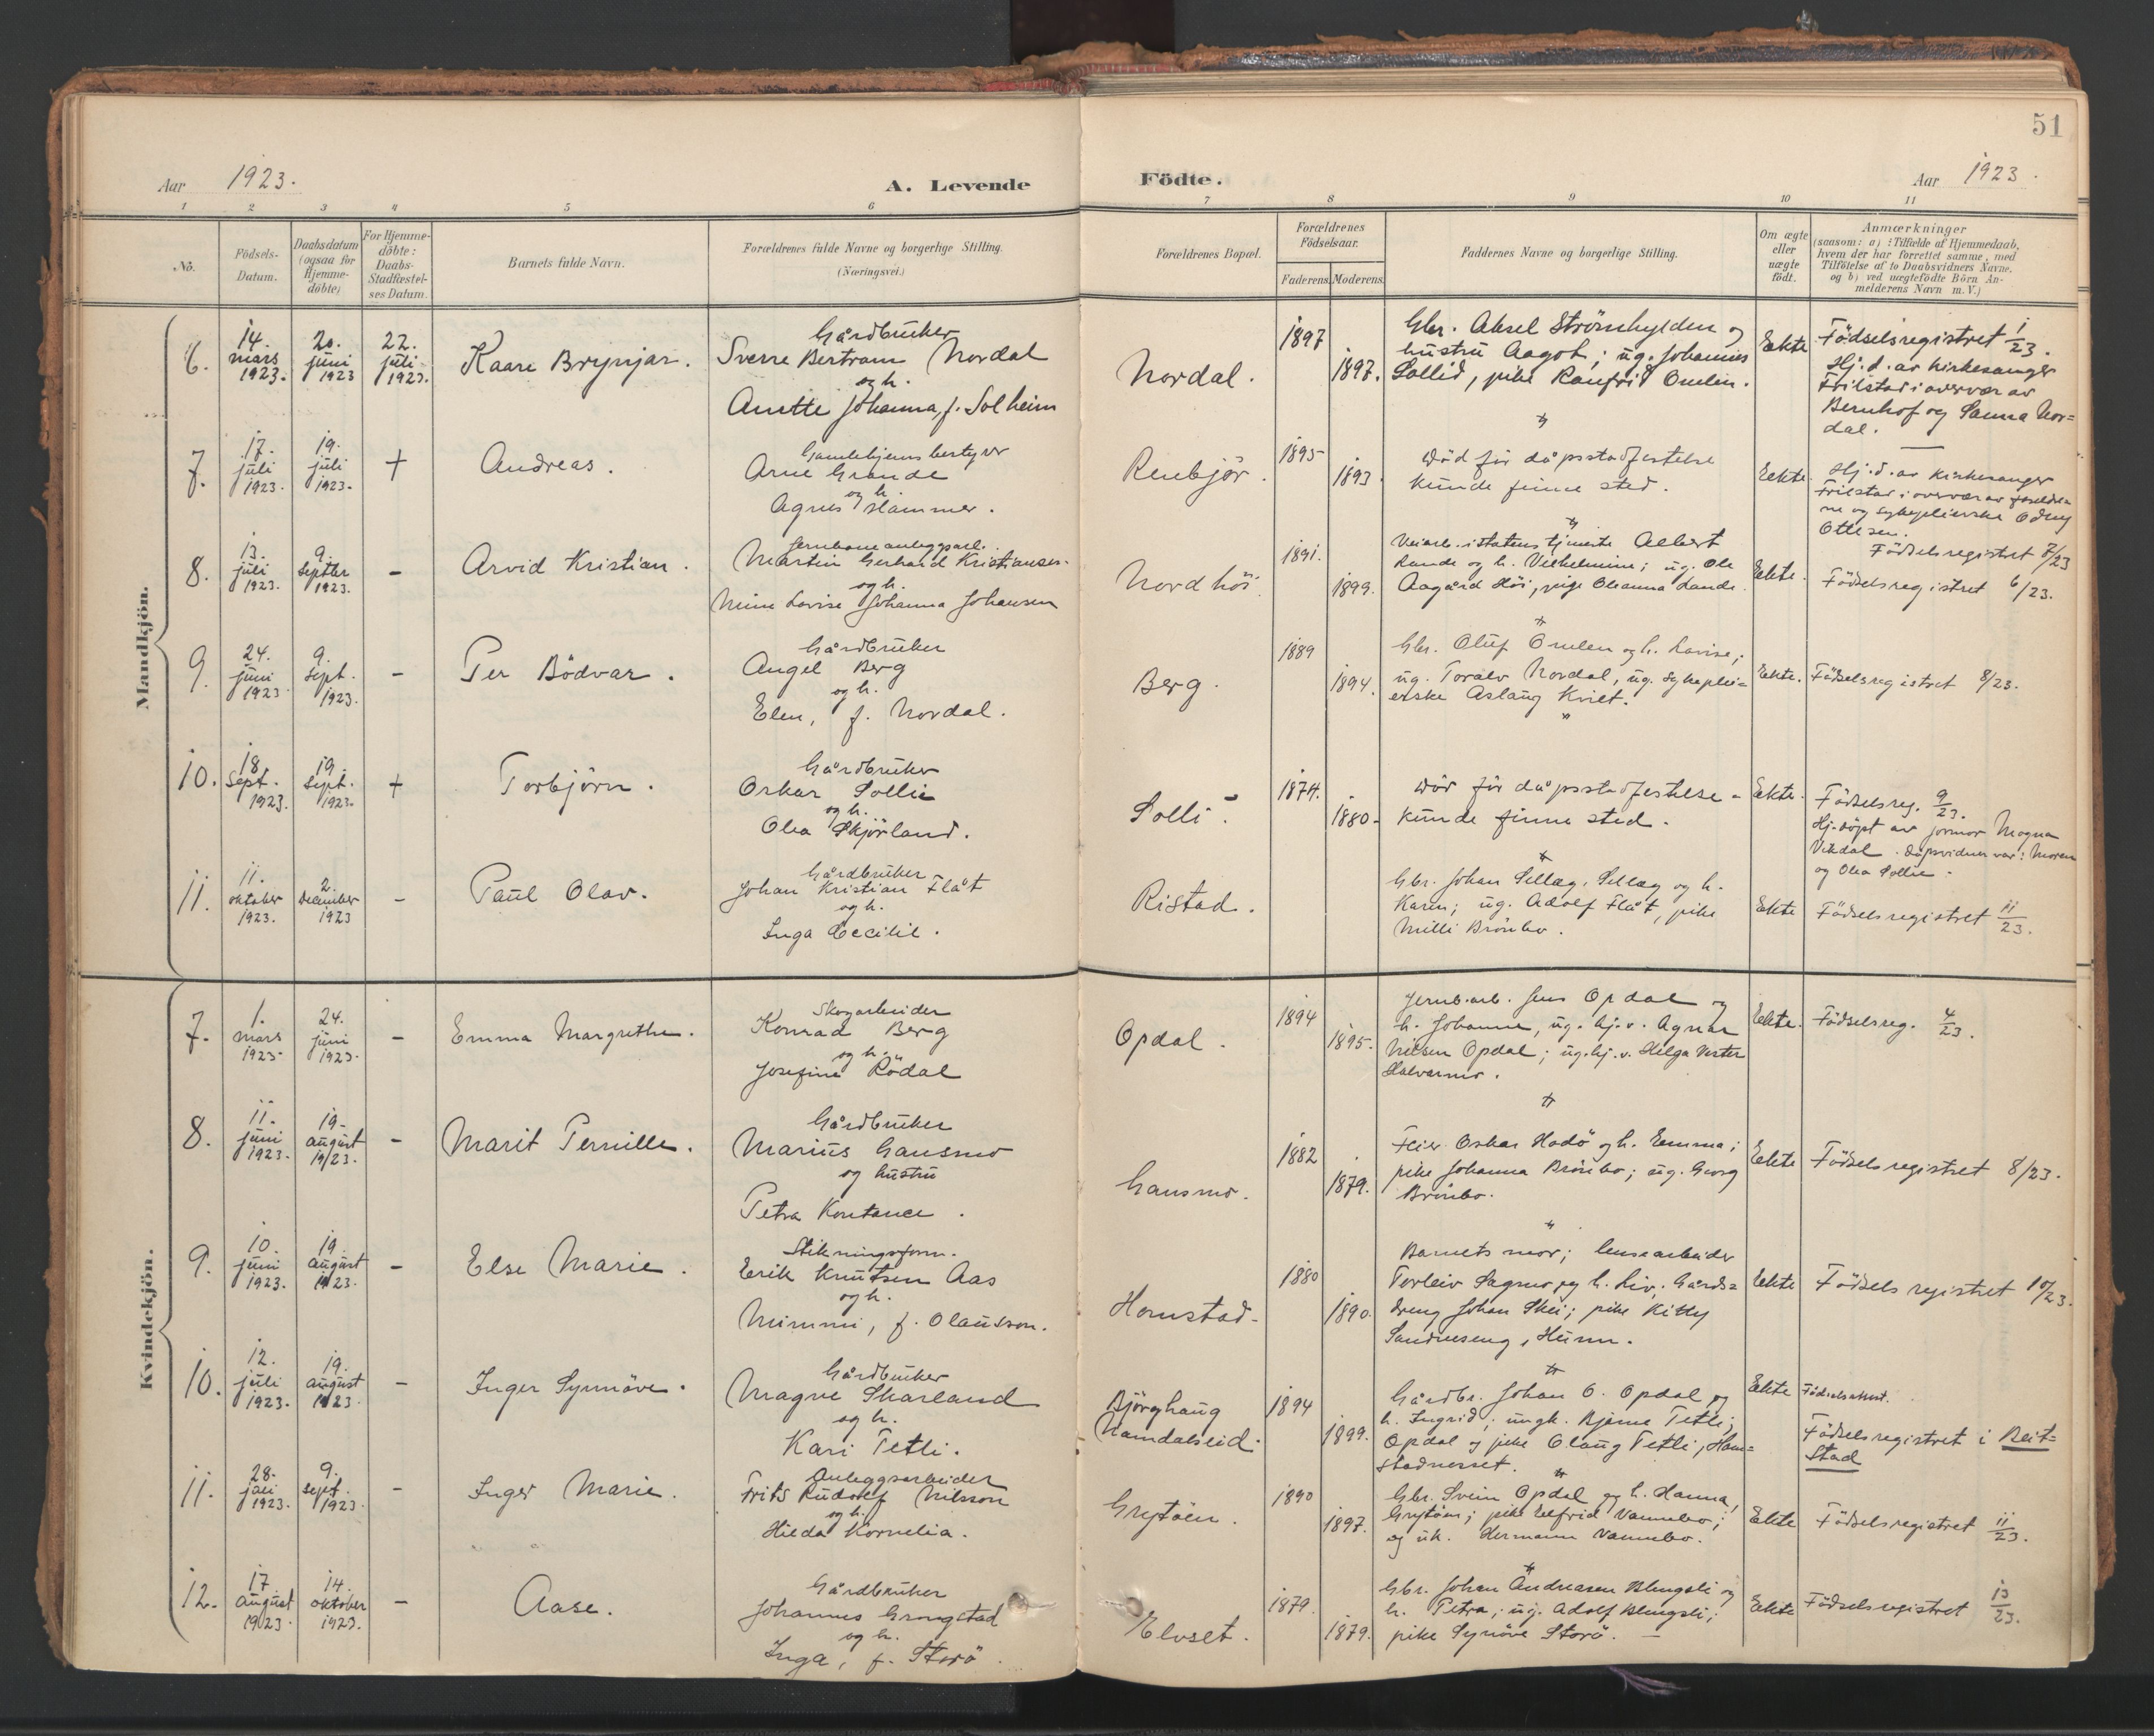 51
Aar 1923.
A. Levende
Födte.
Aar 1923.
1 2 3 4 5 6 7 8 9 10 11
No.
Födsels-
Datum.
Daabsdatum
(ogsaa for
Hjemme-
döbte)
For Hjemme-
döbte:
Daabs-
Stadfæstel-
ses Datum.
Barnets fulde Navn.
Forældrenes fulde Navne og borgerlige Stilling.
(Næringsvei.)
Forældrenes Bopæl.
Forældrenes
Födselsaar.
Faderens. Moderens.
Faddernes Navne og borgerlige Stilling.
Om ægte
eller
uægte
födt.
Anmærkninger
(saasom: a) i Tilfælde af Hjemmedaab,
hvem der har forrettet samme, med
Tilföielse af to Daabsvidners Navne,
og b) ved uægtefödte Börn An-
melderens Navn m. V.)
Mandkjön.
6.
14.
mars
1923.
20.
juni
1923
22.
juli
1923.
Kaare Brynjar.
Gårdbruker
Sverre Bertram Nordal
og h.
Anette Johanna, f. Solheim
Nordal.
1897
1897.
Gbr. Aksel Strömhylden og
hustru Aagot; ug. Johannes
Sollid, pike Ranfrid Omlin.
Ekte
Födselsregistret 1/23.
Hj. d. av kirkesanger
Frilstad i overvær av
Bernhof og Sanna Nor=
dal.
7.
17.
juli
1923.
19.
juli
1923.
+
Andreas.
Gamlehjemsbestyrer
Arne Grande
og h.
Agnes Hammer.
Renbjör.
1895
1893
Död för dåpsstadfestelse
kunde finne sted.
Eekte.
Hj. d. av kirkesanger
Frilstad i overvær av foreldre=
ne og sykepleierske Odny
Ottesen.
Födselsregistret 7/23
8.
13.
juli
1923.
9.
septbr
1923.
-
Arvid Kristian.
Jernbaneanleggsarb.
Martin Gerhard Kristiansen.
og h.
Mimi Lovise Johanna Johansen
Nordhöi.
1891.
1899.
Veiarb. i statens tjeneste Albert
Lande og h. Vilhelmine; ug. Ole
Aagård Höi, pige Oleanna Lande.
Eekte.
Födselsregistret 6/23.
9.
24.
juni
1923
9.
Sept.
1923.
-
Per Bödvar.
Gårdbruker
Angel Berg
og h.
Elen, f. Nordal.
Berg.
1889
1894.
Gbr. Oluf Omlen og h. Lovise;
ug. Toralv Nordal, ug. sykeplei=
erske Aslaug Kviet.
Ekte.
Födselsregistret 8/23.
10.
18.
Sept.
1923.
19.
Sept.
1923.
+
Torbjörn.
Gårdbruker
Oskar Sollie
og h.
Olea Skjörland.
Solli.
1874.
1880.
Död för dåpsstadfestelse
kunde finne sted.
Ekte.
Födselsreg. 9/23.
Hj. döpt av jormor Magna
Vikdal. Dåpsvidner var: Moren
og Olea Sollie.
11.
11.
oktober
1923.
2.
December
1923
-
Paul Olav.
Gårdbruker
Johan Kristian Flåt
og h.
Inga Cecilie.
Ristad.
Gbr. Johan Sellæg, Sellæg og h.
Karen; ug. Adolf Flåt, pike
Milli Brönbo.
Ekte
Födselsregistret 11/23.
Kvindekjön.
7.
1.
mars
1923.
24.
juni
1923.
-
Emma Margrethe.
Skogarbeider
Konrad Berg
og h.
Josefine Rödal
Opdal.
1894
1895.
Jernb.arb. Jens Opdal og
h. Johanne, ug. hj. v. Agnar
Nilsen Opdal; ug. hj. v. Helga Vester
Halvarmo.
Ekte.
Födselsreg. 4/23.
8.
11.
juni
1923.
19.
august
19/23.
-
Marit Pernille.
Gårdbruker
Marius Gansmo
og hustru
Petra Kontance.
Gansmo.
1882
1879.
Feier Oskar Hadö og h. Emma;
pike Johanna Brönbo; ug. Georg
Brönbo.
Eekte
Födselsregistret 8/23.
9.
10.
juni
1923.
19.
august
1923.
-
Else Marie.
Stikningsform.
Erik Knutsen Aas
og h.
Mimmi, f. Olausson.
Homstad.
1880
1890.
Barnets mor; lensearbeider
Torleiv Sagmo og h. Liv; Gårds=
dreng Johan Skei; pike Kitty
Sandneseng, Heimn.
Eekte
Födselsregistret 10/23.
10.
12.
juli
1923.
19.
august
1923.
-
Inger Synnöve.
Gårdbruker
Magne Skarland
og h.
Kari Tetli.
Björghaug
Namdalseid.
1894
1899.
Gårdbr. Johan O. Opdal og
h. Ingrid; ungk. Bjarne Tetli;
Opdal og pike Olaug Tetli, Ham=
stadnesset.
Eekte
Födselsattest.
Födselsregistret i Beit=
stad
11.
28.
juli
1923.
9.
sept.
1923.
-
Inger Marie.
Anleggsarbeider
Frits Rudolf Nilsson
og h.
Hilda Kornelia.
Grytöien.
1890
1897.
Gbr. Svein Opdal og h. Hanna,
Grytöien; pike Elfrid Vannebo;
og uk. Hermann Vannebo.
Ekte
Födselsregistret 11/23.
12.
17.
august
1923.
14.
oktober
1923.
-
Aase.
Gårdbruker
Johannes Grongstad
og h.
Inga, f. Storö.
Elvset.
1879.
1879.
Gbr. Johan Andreasen Blengsli og
h. Petra; ug. Adolf Blengsli;
pike Synöve Storö.
Eekte
Födselsregistret 13/23.